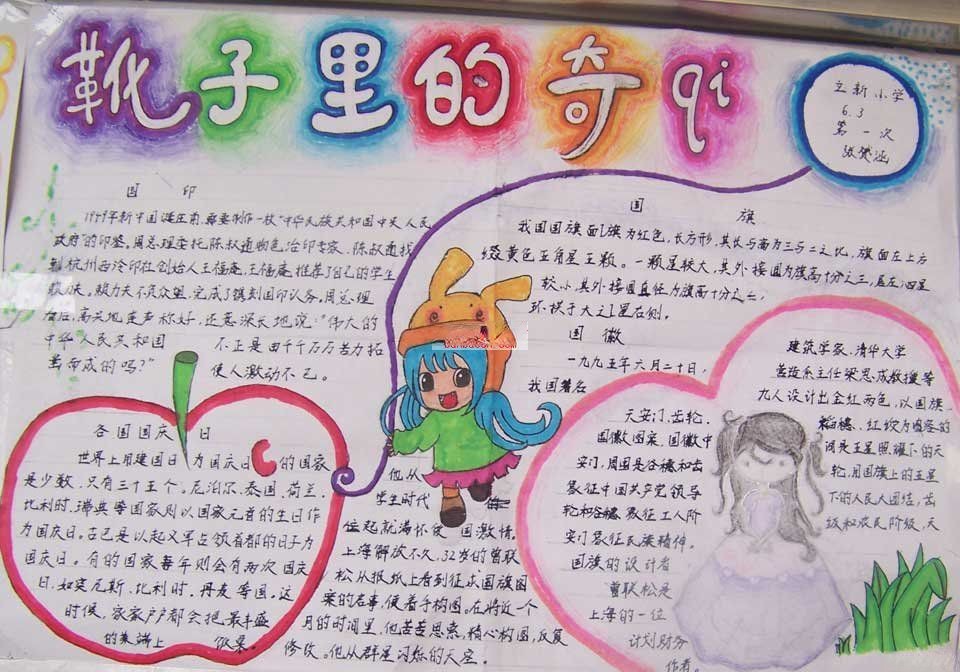 靴子里的奇qi
立新小学
6.3
第一次
国印
1949年新中国诞生前,需要制作一枚"中华民族共和国中央人民
政府"的印鉴,周总理委托陈叔通物色治印专家,陈叔通找
到杭州西泠印社创始人王福庵,王福庵推荐了自己的学生
顿力夫。顿力夫不负众望,完成了镌刻国印任务。周总理
看后,高兴地连声称好,还意深长地说:"伟大的
中华人民共和国 不正是由千千万万苦力拓
而成的吗?" 使人激动不已。
国旗
我国国旗面为红色,长方形,其长与高为三与二之比,旗面左上方
缀黄色五角星五颗。一颗星较大,其外接圆为旗高十分之三,居左;四星
较小,其外接圆直径为旗高十分之一,
环拱于大星右侧。
国徽
一九九五年六月二十日,
我国著名
建筑学家、清华大学
营造系主任梁思成教授等
九人设计出金红两色,以国旗、
天安门、齿轮、
稻穗、红绶为内容的
国徽图案。国徽中
间是五星照耀下的天
安门,周围是谷穗和齿
轮,用国旗上的五星
象征中国共产党领导
下的人民大团结,齿
轮和谷穗象征工人阶
级和农民阶级,天
安门象征民族精神。
国旗的设计者
曾联松是
上海的一位
计划财务
作者。
他从
学生时代
起就满怀爱国激情。
上海解放不久,32岁的曾联
松从报纸上看到征求国旗图
案的启事,便着手构图。在将近一个
月的时间里,他苦苦思索,精心构图,反复
修改。他从群星闪烁的天空、
各国国庆日
世界上用建国日为国庆日的国家
是少数,只有三十五个。尼泊尔、泰国、荷兰、
比利时、瑞典等国家则以国家元首的生日作
为国庆日。古巴是以起义军占领首都的日子为
国庆日。有的国家每年则会有两次国庆
日,如突尼斯、比利时、丹麦等国。这
时候,家家户户都会把最丰盛